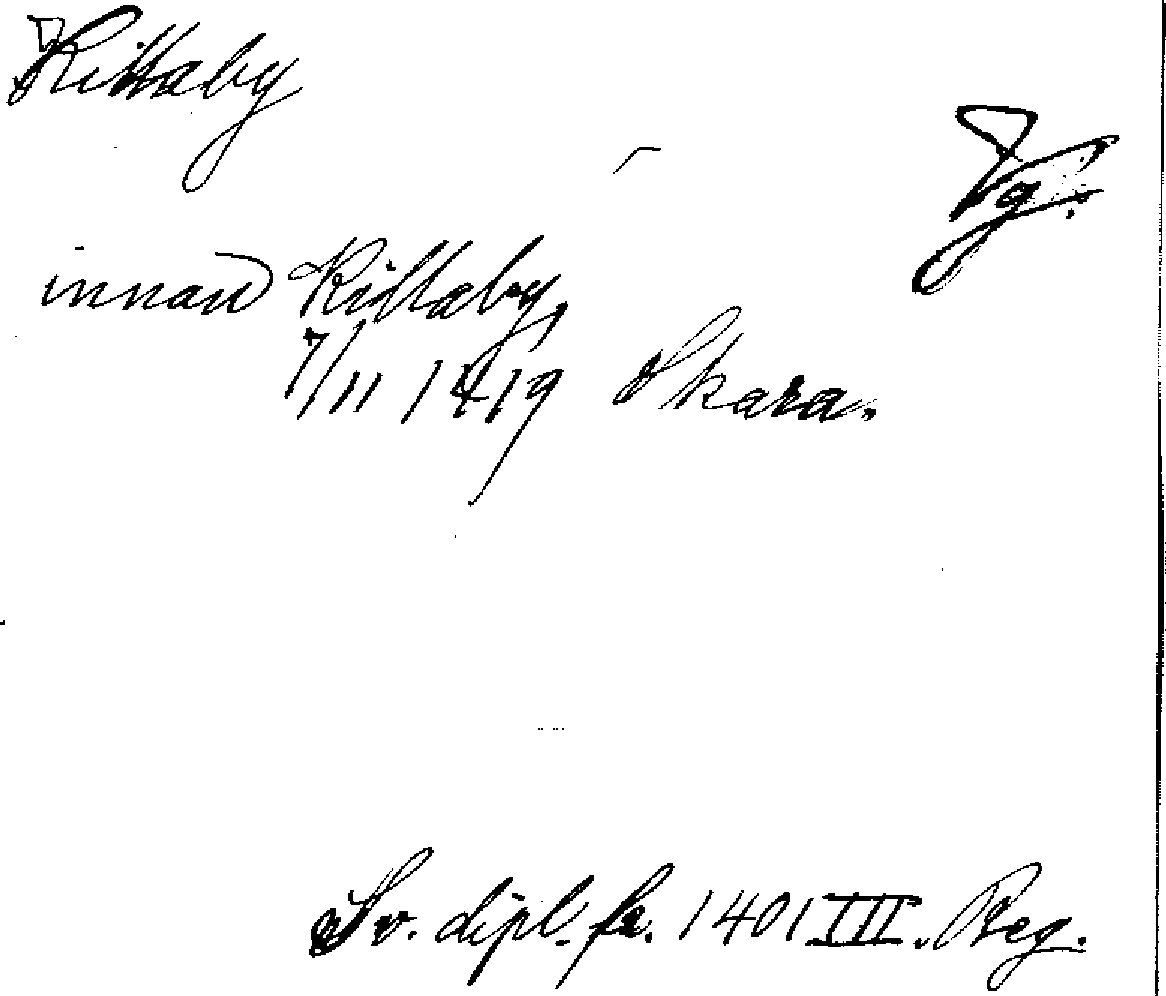 Kittaby
Vg.
innan Kittaby,
7/11 1419 Skara.
Sv. dipl. fr. 1401 III. Reg.